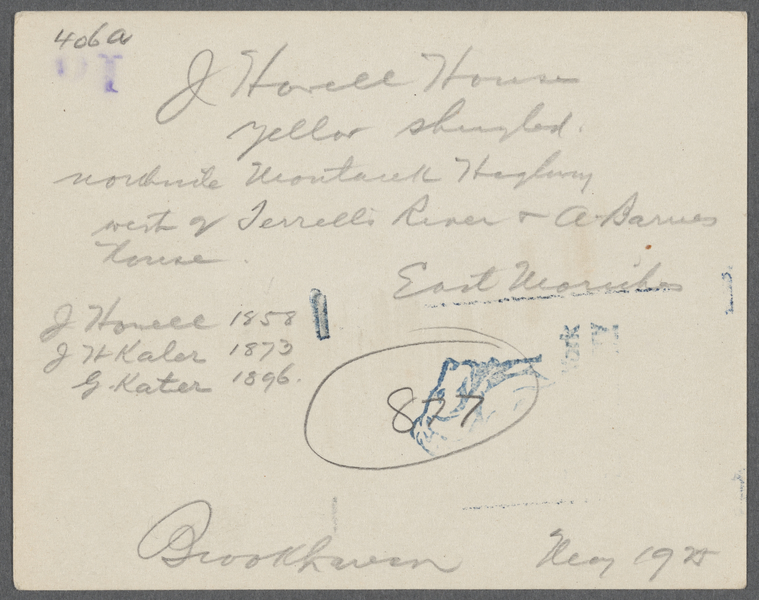 406a
J Howell House
yellow shingled.
northside Montauk Highway
west of Terrell's River & A. Barnes
house.
East Moriches
J Howell 1858
J H Kaler 1873
G. Kater 1896.
827
Brookhaven May 1925